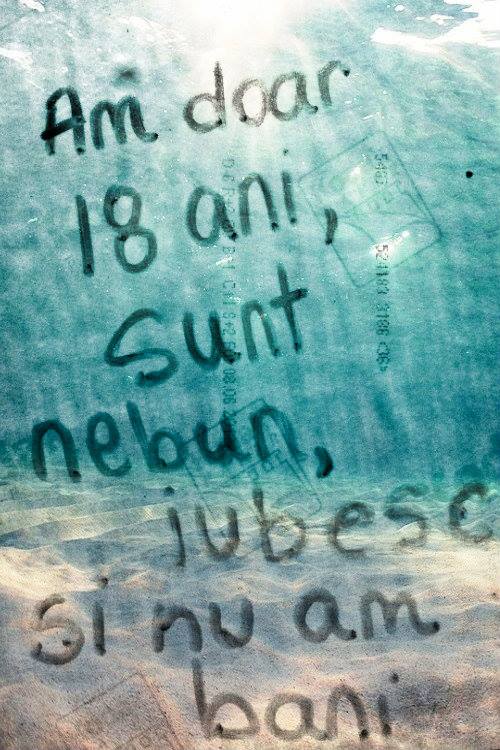 Am doar
18 ani,
sunt
nebun,
iubesc
si nu am
bani